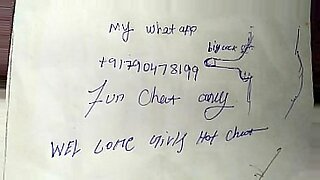 My what app
big cock
+91790478199
Fun Chat only
WEL COME Girls Hot Chat